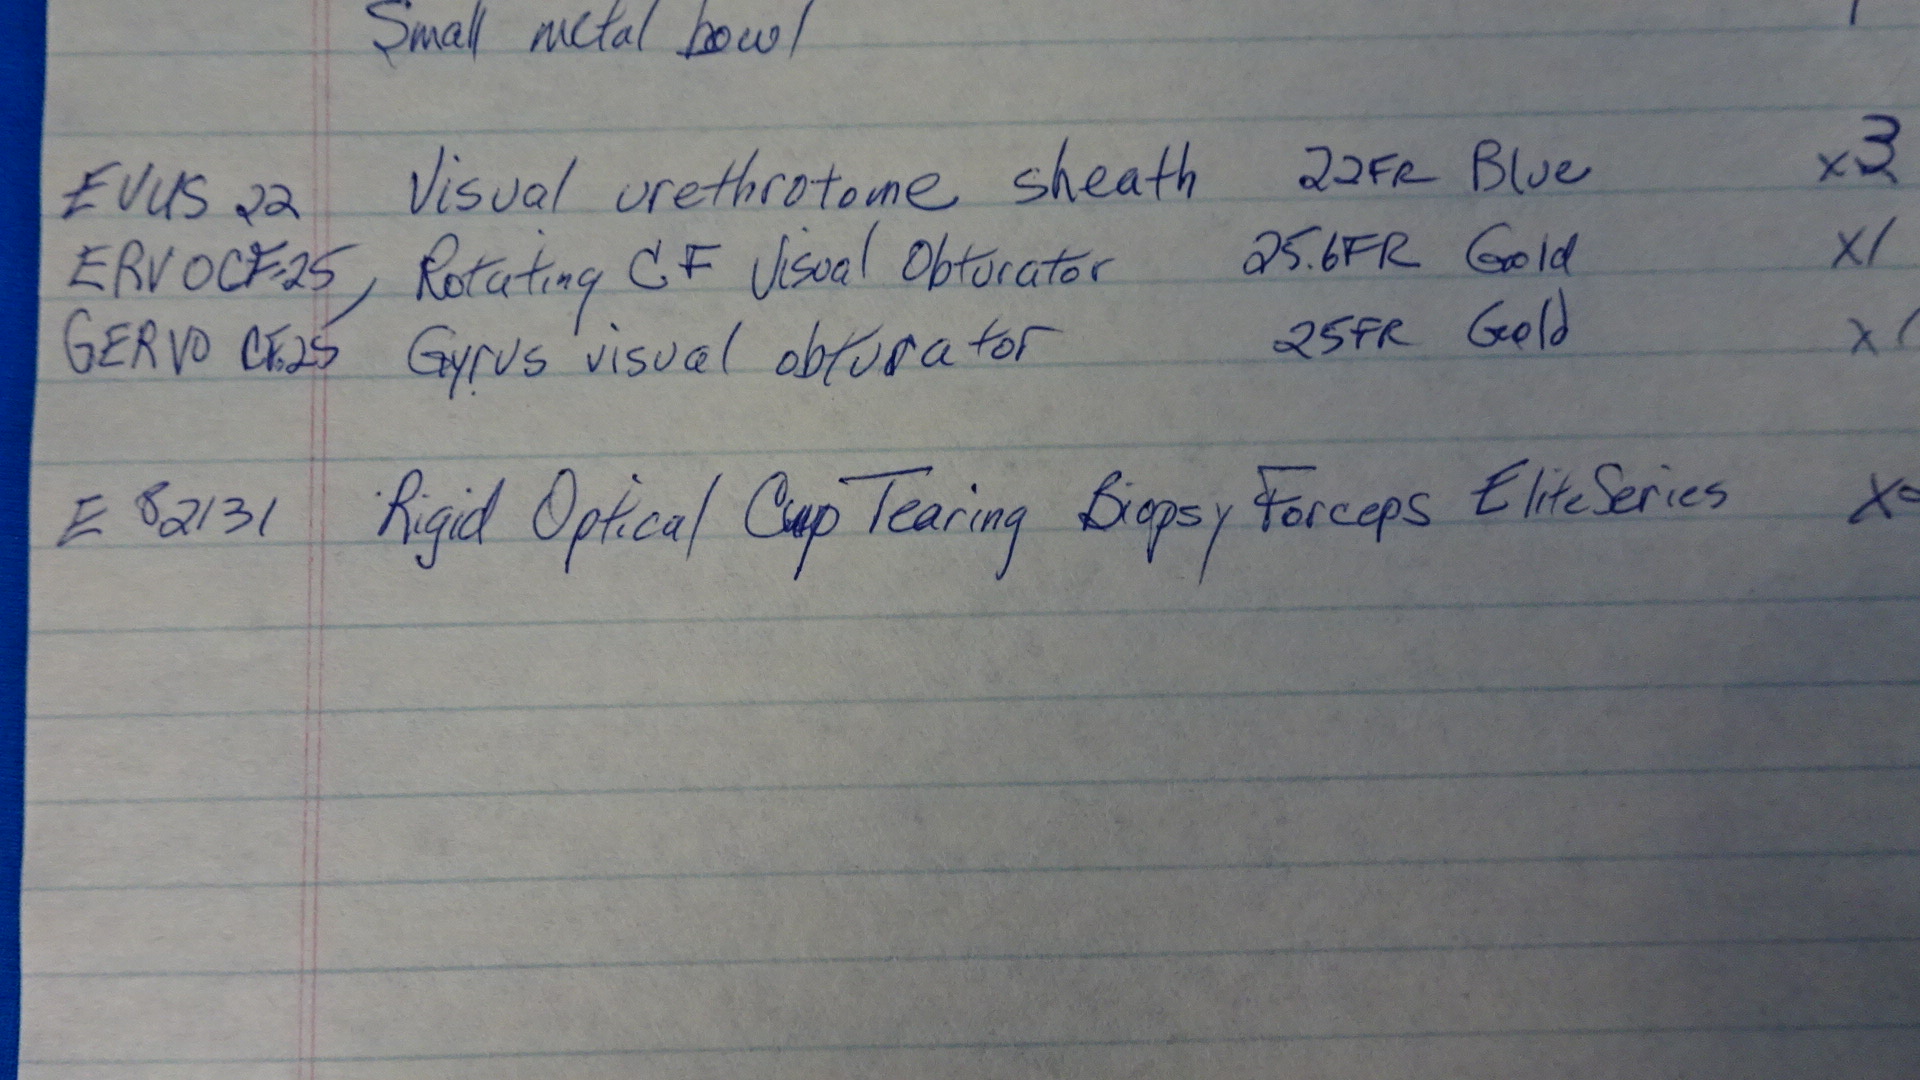 Small metal bowl
EVUS 22 Visual urethrotome sheath 22FR Blue x3
ERVOCF-25, Rotating CF Visual Obturator 25.6FR Gold x1
GERVO CF.25 Gyrus visual obturator 25FR Gold x
E 82131 Rigid Optical Cup Tearing Biopsy Forceps Elite Series x